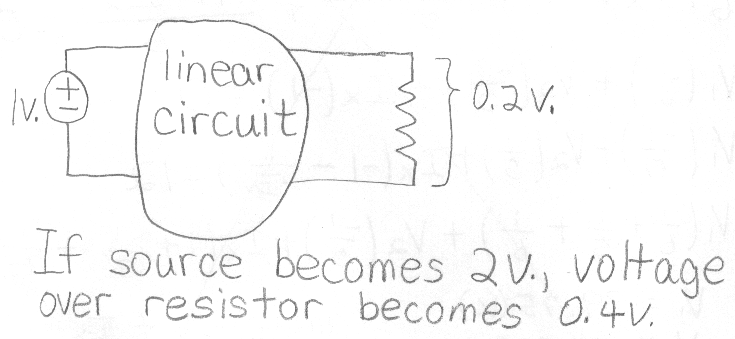 linear
1v.
+
-
0.2 v.
circuit
If source becomes 2v., voltage
over resistor becomes 0.4v.